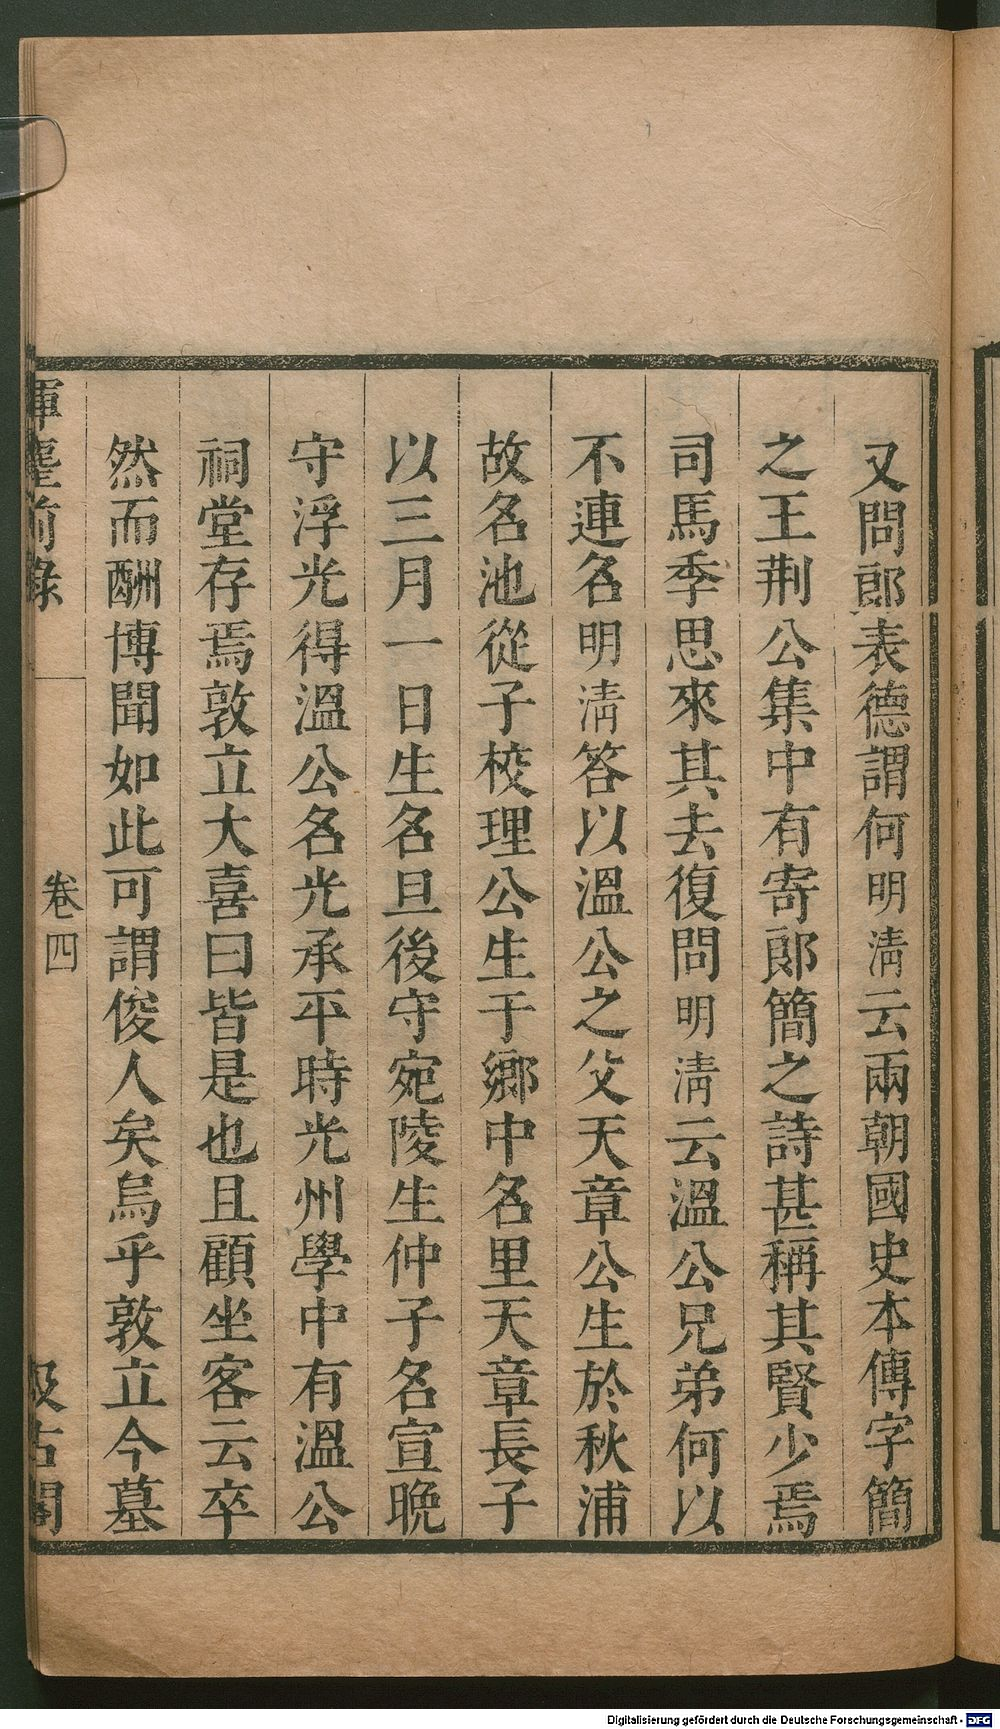 又問郞表德謂何明淸云兩朝國史本傳字簡
之王荆公集中有寄郞簡之詩甚稱其賢少焉
司馬季思來其去復問明淸云溫公兄弟何以
不連名明淸答以溫公之父天章公生於秋浦
故名池從子校理公生于鄕中名里天章長子
以三月一日生名旦後守宛陵生仲子名宣晚
守浮光得溫公名光承平時光州學中有溫公
祠堂存焉敦立大喜曰皆是也且顧坐客云卒
然而酬博聞如此可謂俊人矣烏乎敦立今墓
揮麈前錄 卷四 汲古閣
Digitalisierung gefördert durch die Deutsche Forschungsgemeinschaft - DFG